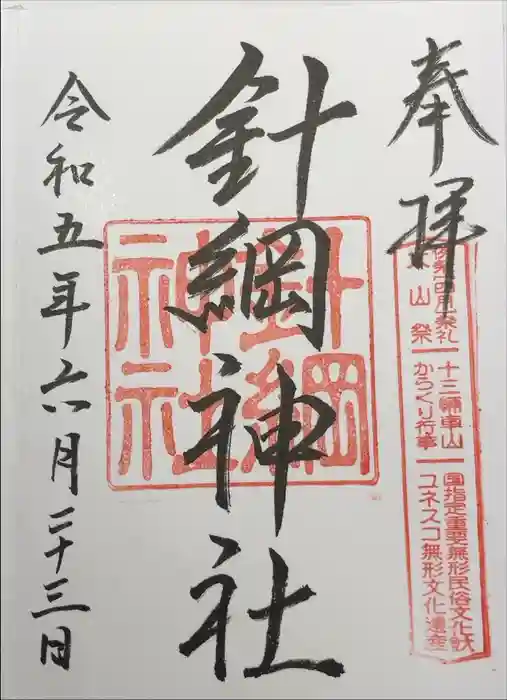 奉拝
四月祭礼
山祭
十三輛車山
からくり行事
国指定重要無形民俗文化財
ユネスコ無形文化遺産
針綱神社
針綱
神社
令和五年六月二十三日